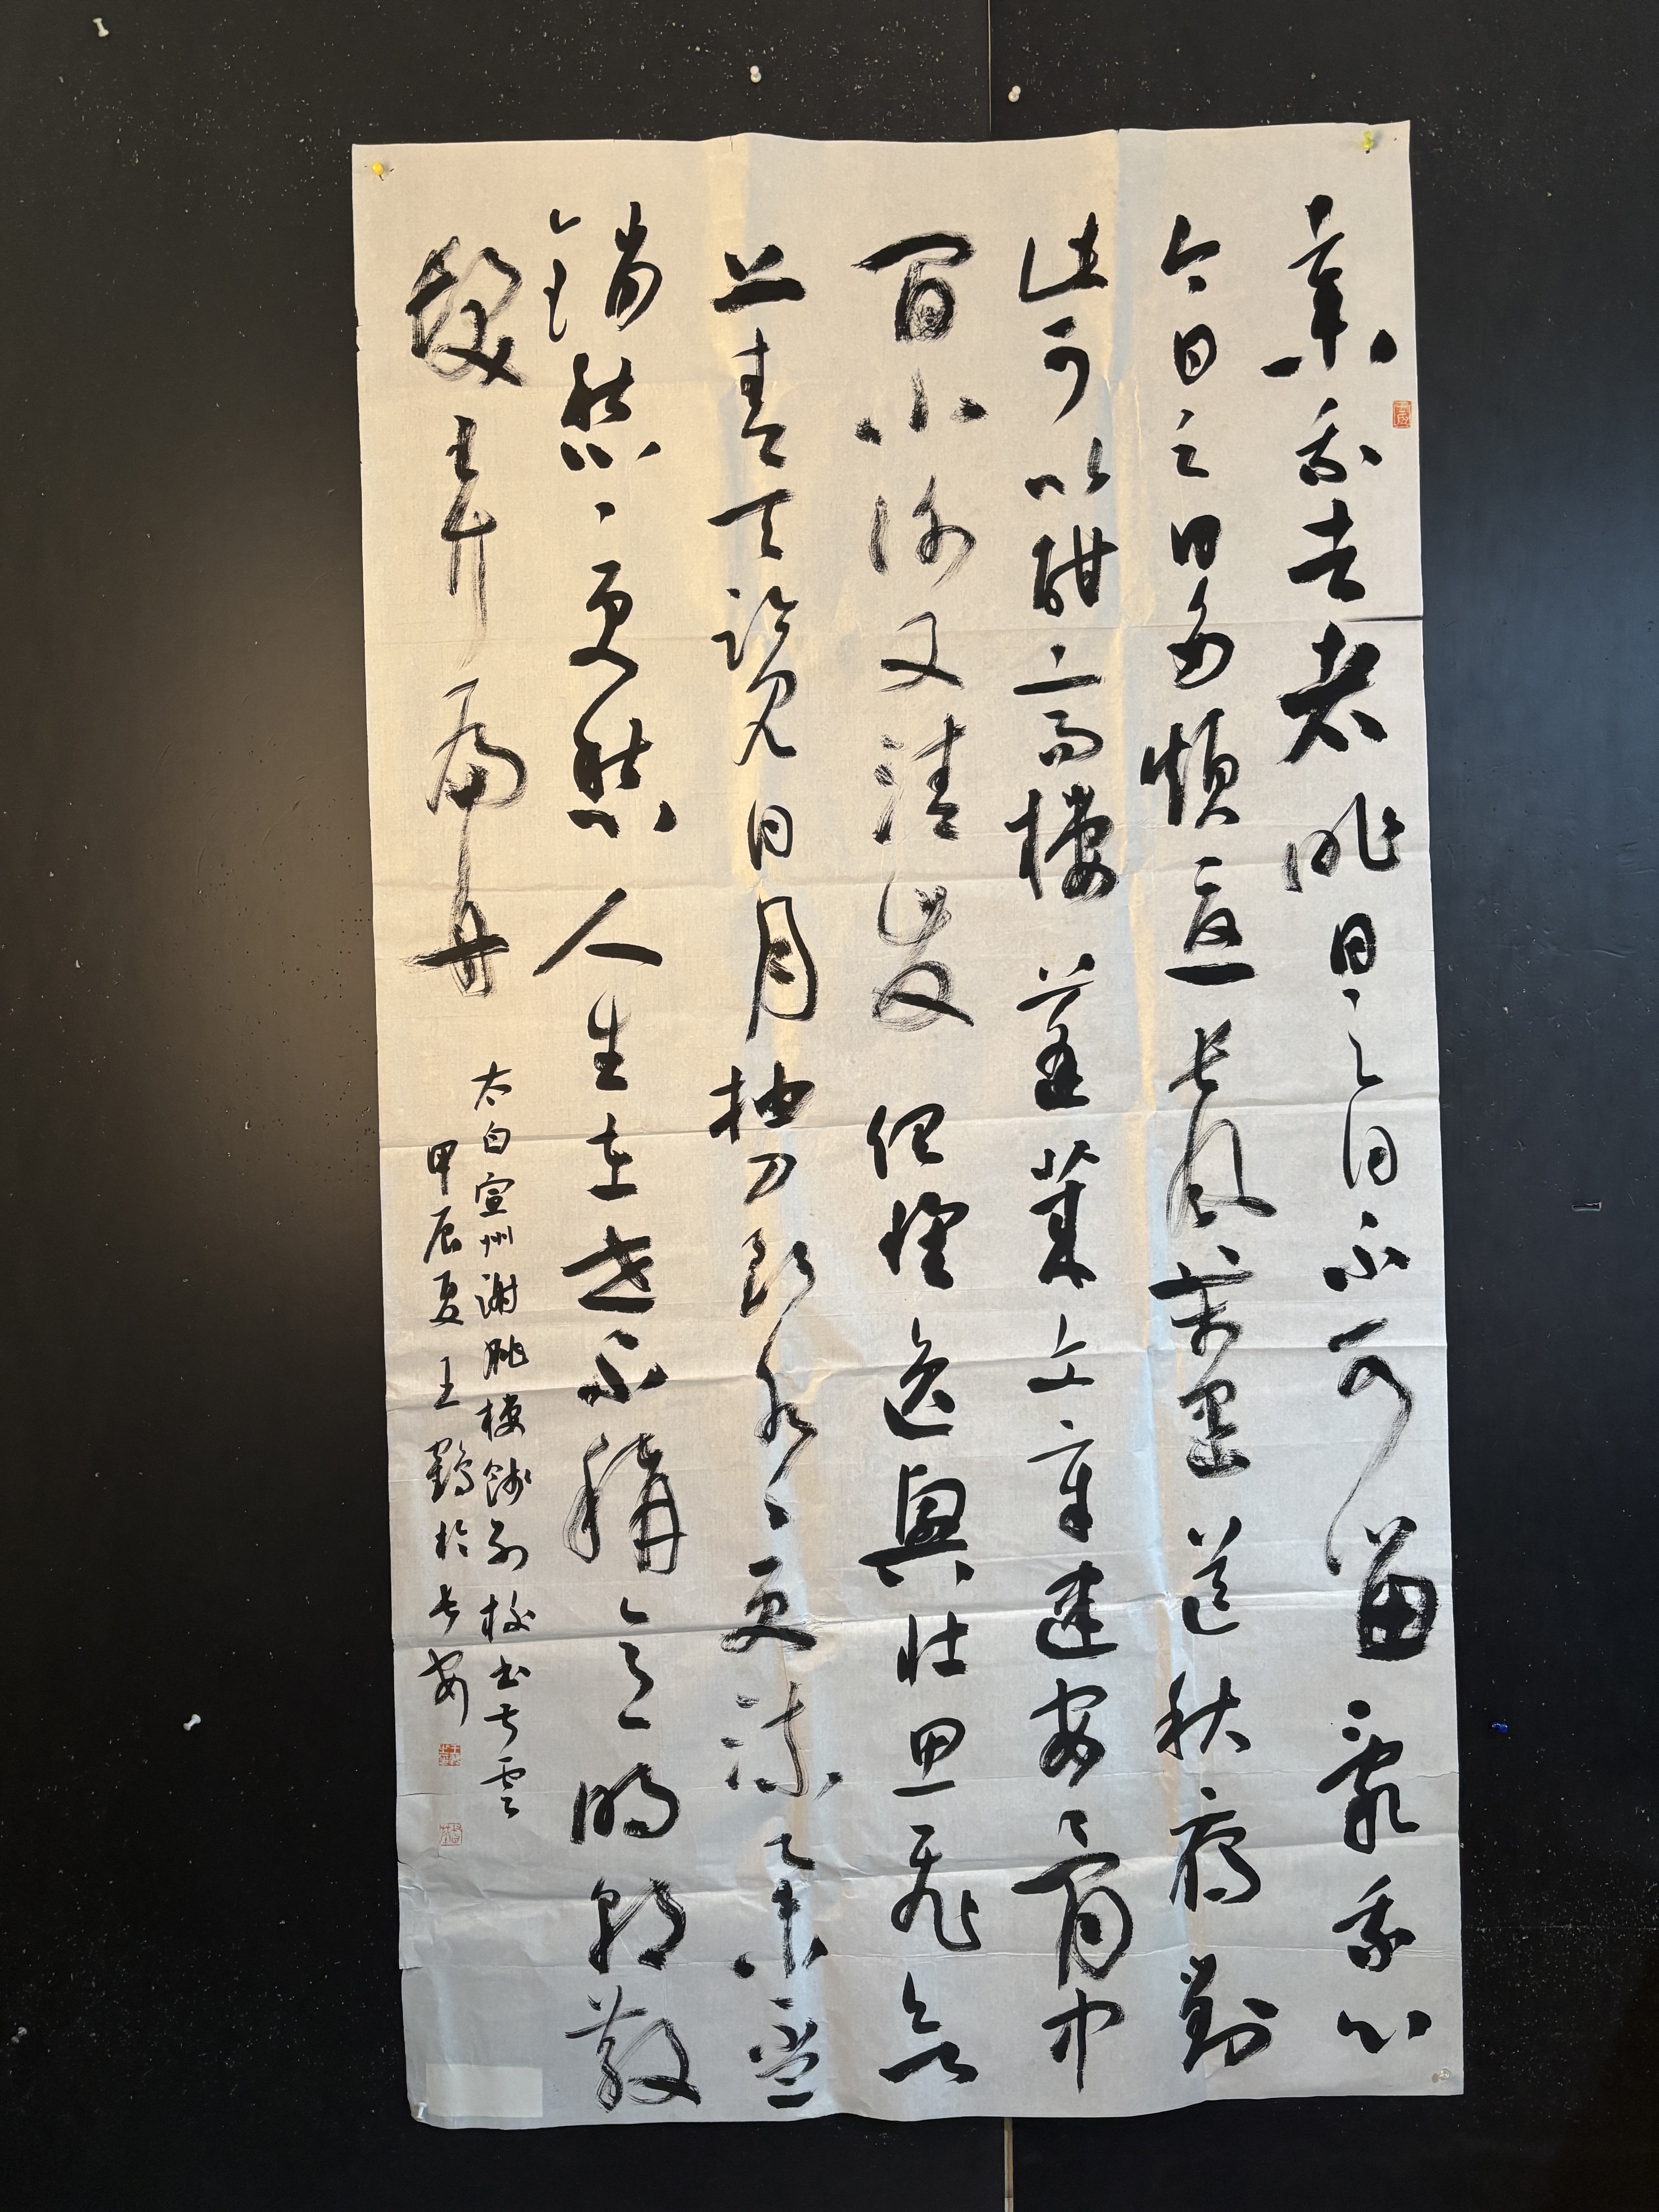 棄我去者昨日之日不可留亂我心
今日之日多煩憂長風萬里送秋雁對
此可以酣高樓蓬萊文章建安骨中
間小謝又清發俱懷逸興壯思飛欲
上青天覽日月抽刀斷水〻更流舉盃
銷愁〻更愁人生在世不稱意明朝散
髮弄扁舟
太白宣州謝朓樓餞別校书叔雲
甲辰夏王於长安